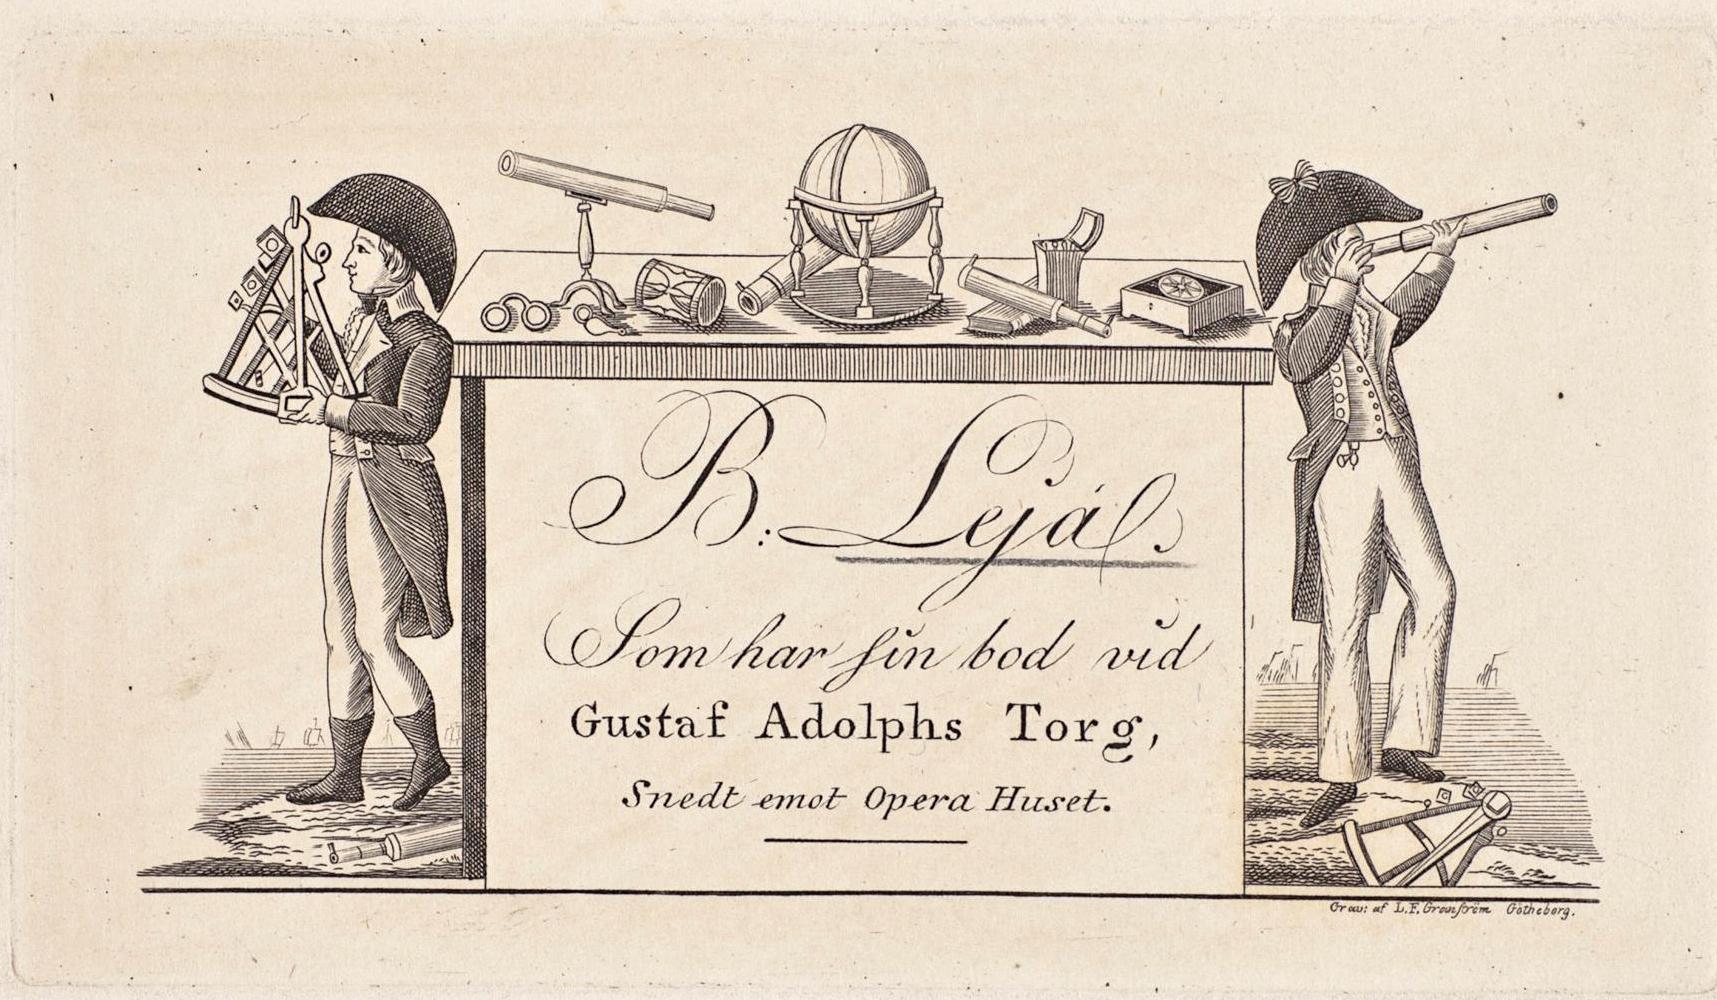 B: Lejá.
Som har sin bod vid
Gustaf Adolphs Torg,
Snedt emot Opera Huset.
Grav: af L.F. Granström Götheborg.